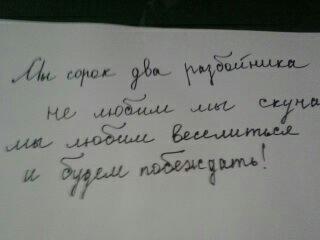 Мы сорок два разбойника
не любим мы скуча
мы любим веселиться
и будем побеждать!